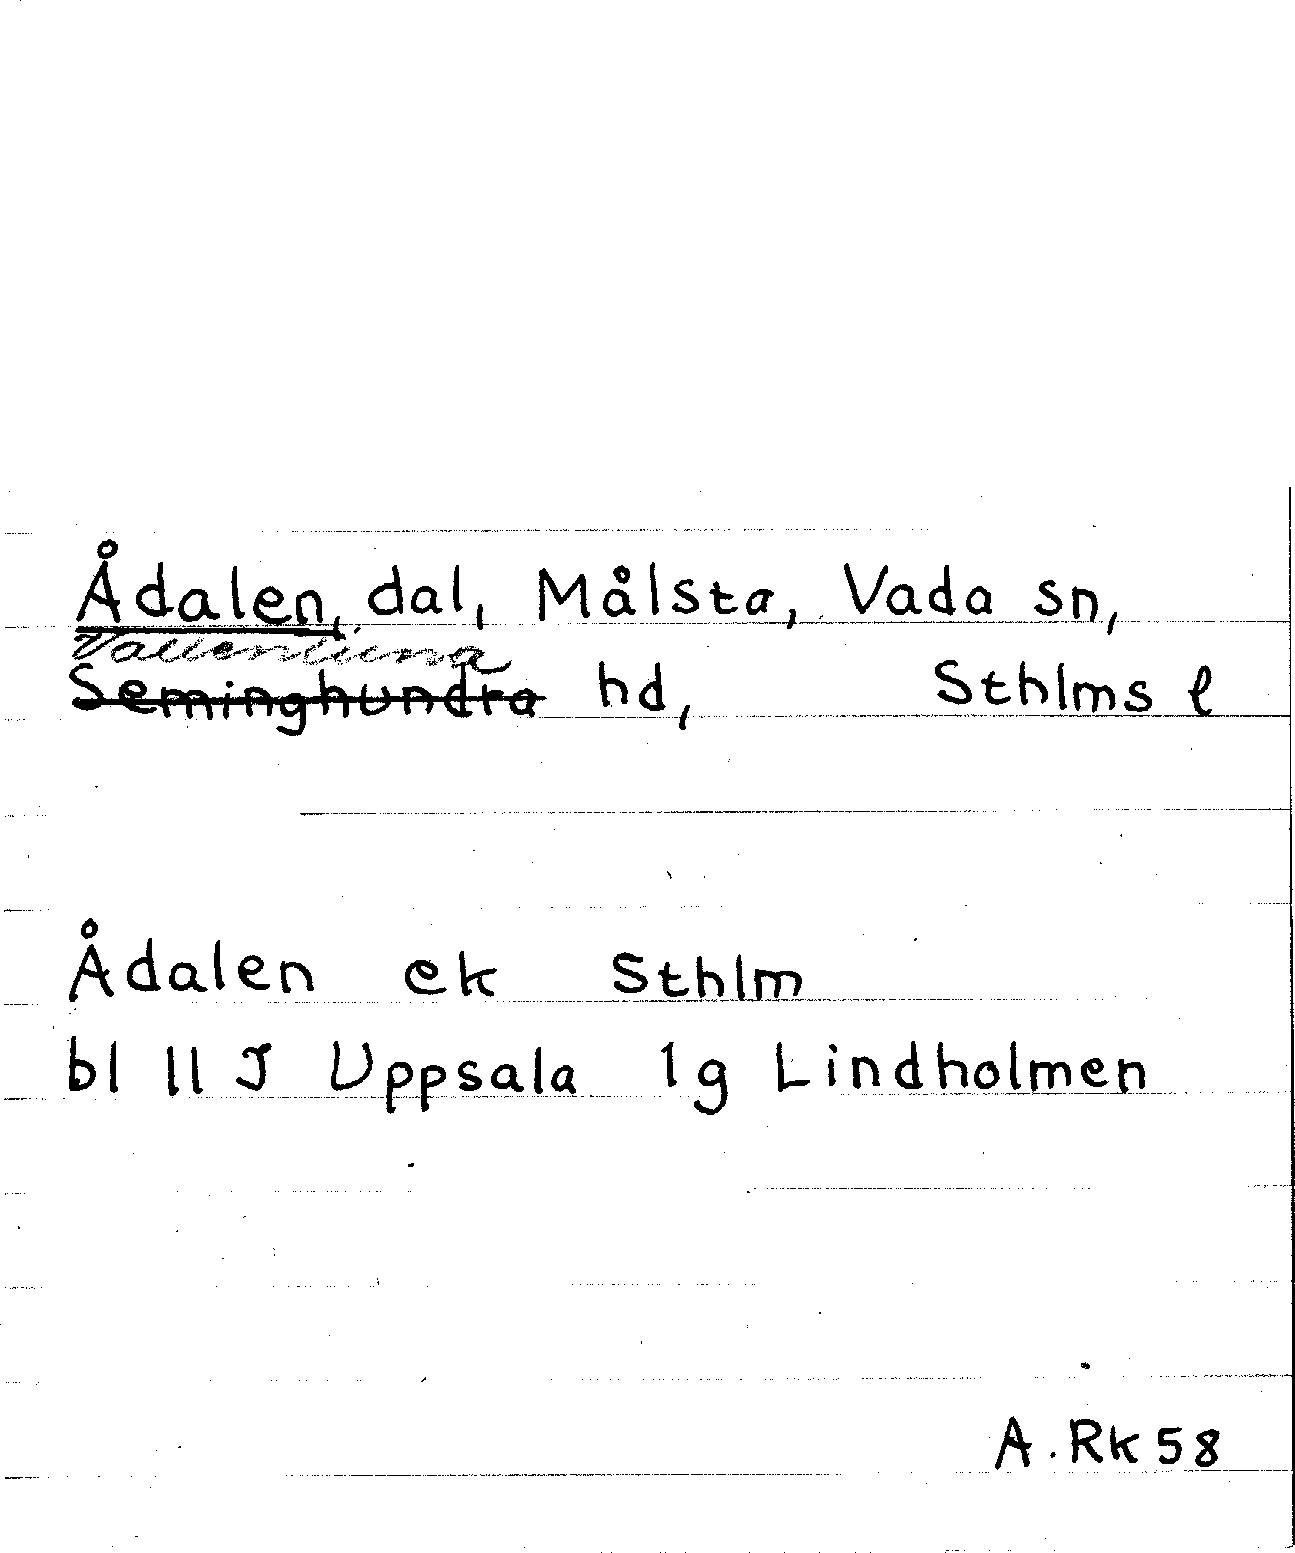 Ådalen, dal, Målsta, Vada sn,
Vallentuna
Seminghundra hd, Sthlms l
Ådalen ek Sthlm
bl 11 J Uppsala 1g Lindholmen
A. Rk 58